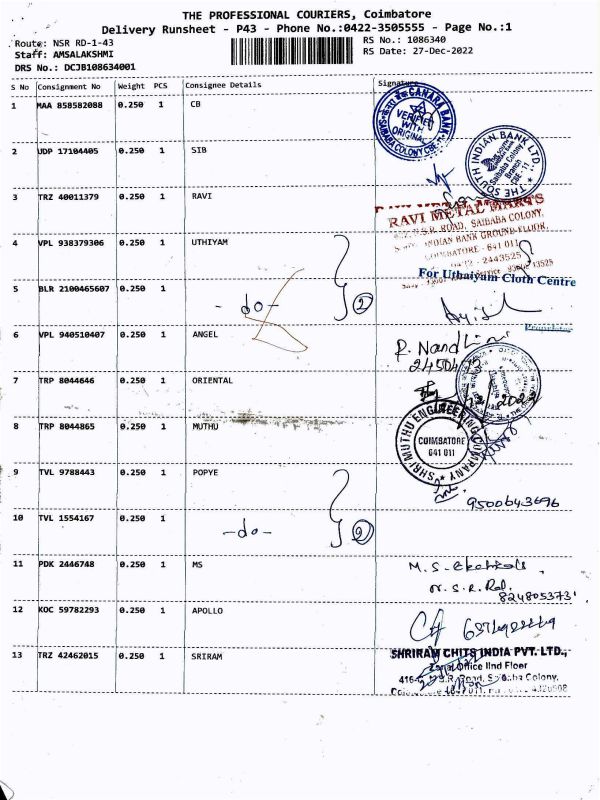 THE PROFESSIONAL COURIERS, Coimbatore
Delivery Runsheet - P43 - Phone No.:0422-3505555 - Page No.:1
Route: NSR RD-1-43
Staff: AMSALAKSHMI
DRS No.: DCJB108634001
RS No.: 1086340
RS Date: 27-Dec-2022
S No Consignment No Weight PCS Consignee Details Signature
1 MAA 858582088 0.250 1 CB
CANARA BANK
VERIFIED WITH ORIGINAL
SAIBABA COLONY
2 UDP 17104405 0.250 1 SIB
THE SOUTH INDIAN BANK LTD.
Saibaba Colony
Branch
CBE - 11
3 TRZ 40011379 0.250 1 RAVI
RAVI METAL MARTS
N.S.R. ROAD, SAIBABA COLONY,
INDIAN BANK GROUND FLOOR,
COIMBATORE - 641 011
2443525
4 VPL 938379306 0.250 1 UTHIYAM
For Uthaiyam Cloth Centre
5 BLR 2100465607 0.250 1
- do - 2
Proprietor
6 VPL 940510407 0.250 1 ANGEL
R. Nandhini
7 TRP 8044646 0.250 1 ORIENTAL
8 TRP 8044865 0.250 1 MUTHU
SHRI MUTHU ENGINEERING COMPANY
COIMBATORE
641 011
9 TVL 9788443 0.250 1 POPYE
9500643696
10 TVL 1554167 0.250 1
- do - 9
11 PDK 2446748 0.250 1 MS
M. S.
N. S. R. Rd.
8248053731
12 KOC 59782293 0.250 1 APOLLO
13 TRZ 42462015 0.250 1 SRIRAM
SHRIRAM CHITS INDIA PVT. LTD.,
Zonal Office IInd Floor
416- N.S.R. Road, Saibaba Colony,